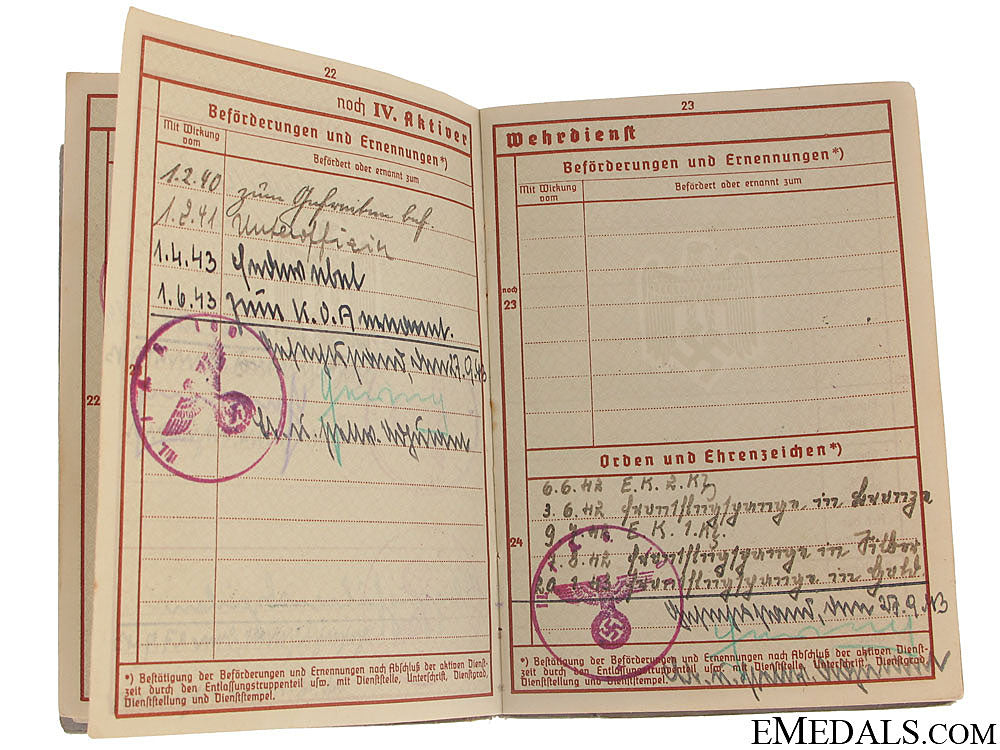 22
noch IV. Aktiver
Beförderungen und Ernennungen*)
Mit Wirkung vom
Befördert oder ernannt zum
1.2.40 zum Gefreiten bef.
1.2.41 Unteroffizier
1.4.43 Feldwebel
1.6.43 zum K.O.A ernannt.
den 27.9.43
22
*) Bestätigung der Beförderungen und Ernennungen nach Abschluß der aktiven Dienst-
zeit durch den Entlassungstruppenteil usw. mit Dienststelle, Unterschrift, Dienstgrad,
Dienststellung und Dienststempel.
23
Wehrdienst
Beförderungen und Ernennungen*)
Mit Wirkung vom
Befördert oder ernannt zum
noch
23
Orden und Ehrenzeichen*)
6.6.42 E.K. 2. Kl.
3.6.42 Frontflugspange in Bronze
E.K. 1. Kl.
24
.8.42 Frontflugspange in Silber
Frontflugspange in Gold
den 27.9.43
*) Bestätigung der Beförderungen und Ernennungen nach Abschluß der aktiven Dienst-
zeit durch den Entlassungstruppenteil usw. mit Dienststelle, Unterschrift, Dienstgrad,
Dienststellung und Dienststempel.
EMEDALS.COM